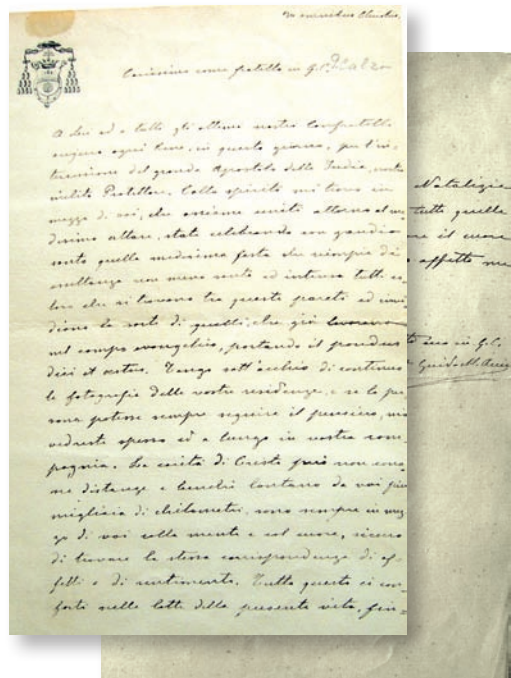 In omnibus Christus.
Carissimo come fratello in G.C.
A lei ed a tutti gli ottimi nostri Confratelli
auguro ogni bene, in questo giorno, per l'in-
tercessione del grande Apostolo delle Indie, nostro
inclito Protettore. Collo spirito mi trovo in
mezzo di voi, che assieme uniti attorno al me
desimo altare, state celebrando con gaudio
santo quella medesima festa che riempie di
esultanza non meno santa ed intensa tutti co-
loro che si trovano tra queste pareti ed invi
diano la sorte di quelli, che già lavorano
nel campo evangelico, portando il pondus
diei et aestus. Tengo sott'occhio di continuo
le fotografie delle vostre residenze, e se la per
sona potesse sempre seguire il pensiero, mi
vedreste spesso ed a lungo in vostra com-
pagnia. La carità di Cristo però non cono
sce distanze e benché lontano da voi più
migliaia di chilometri, sono sempre in mez
zo di voi colla mente e col cuore, sicuro
di trovare la stessa corrispondenza di af-
fetti e di sentimento. Tutto questo ci con-
forti nelle lotte della presente vita, fin-
Natalizie
tutte quelle
il cuore
affetto
in G.C.
Guido M. Arciv